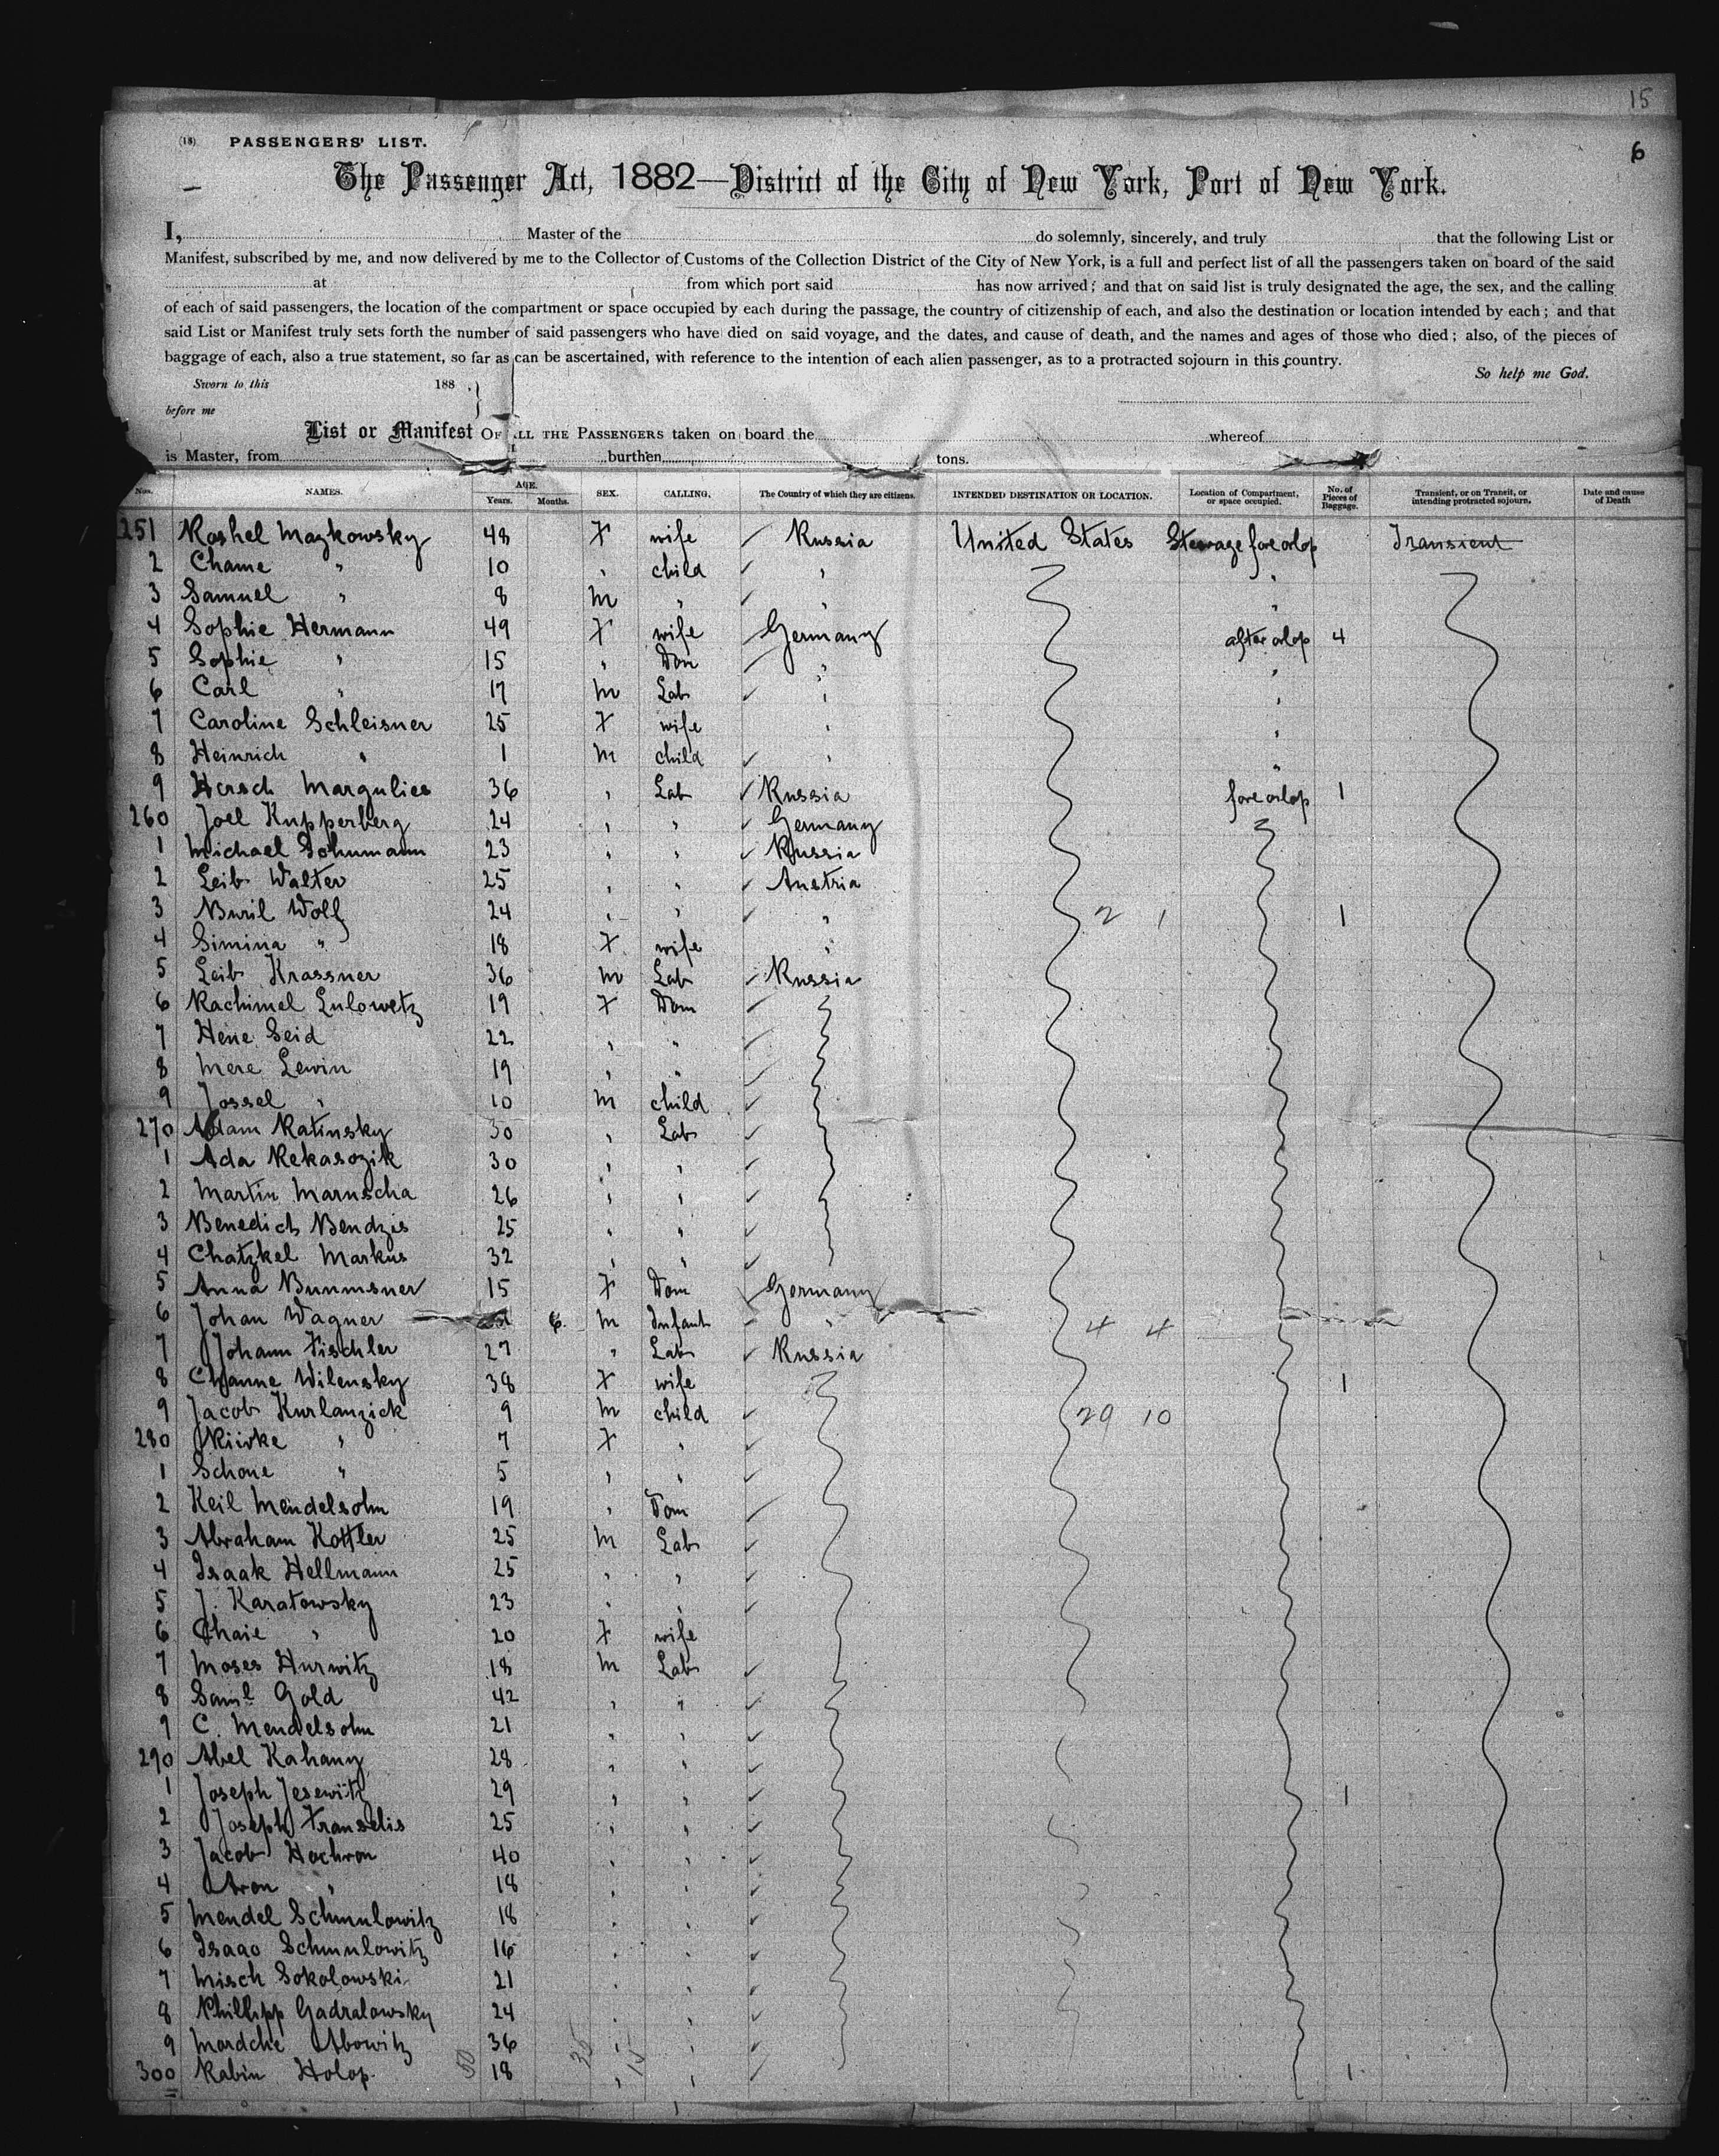 15
6
(18) PASSENGERS' LIST.
The Passenger Act, 1882—District of the City of New York, Port of New York.
I, Master of the do solemnly, sincerely, and truly that the following List or
Manifest, subscribed by me, and now delivered by me to the Collector of Customs of the Collection District of the City of New York, is a full and perfect list of all the passengers taken on board of the said
at from which port said has now arrived; and that on said list is truly designated the age, the sex, and the calling
of each of said passengers, the location of the compartment or space occupied by each during the passage, the country of citizenship of each, and also the destination or location intended by each; and that
said List or Manifest truly sets forth the number of said passengers who have died on said voyage, and the dates, and cause of death, and the names and ages of those who died; also, of the pieces of
baggage of each, also a true statement, so far as can be ascertained, with reference to the intention of each alien passenger, as to a protracted sojourn in this country.
So help me God.
Sworn to this 188
before me
List or Manifest OF ALL THE PASSENGERS taken on board the whereof
is Master, from burthen tons.
Nos. NAMES. AGE. Years. Months. SEX. CALLING. The Country of which they are citizens. INTENDED DESTINATION OR LOCATION. Location of Compartment, or space occupied. No. of Pieces of Baggage. Transient, or on Transit, or intending protracted sojourn. Date and cause of Death
251 Roshel Mazkowsky 48 F wife Russia United States Steerage fore orlop Transient
2 Chame " 10 " child "
3 Samuel " 8 m " "
4 Sophie Hermann 49 F wife Germany after orlop 4
5 Sophie " 15 " Dom "
6 Carl " 17 m Lab "
7 Caroline Schleisner 25 F wife "
8 Heinrich " 1 m child "
9 Hersch Margulies 36 " Lab Russia fore orlop 1
260 Joel Kupperberg 24 " " Germany
1 Michael Schumann 23 " " Russia
2 Leib Walter 25 " " Austria
3 Buril Wolf 24 " " " 2 1 1
4 Simina " 18 F wife "
5 Leib Krassner 36 m Lab Russia
6 Rachimel Lulowetz 19 F Dom
7 Hene Seid 22 " "
8 Mere Lewin 19 " "
9 Jossel " 10 m child
270 Adam Ratinsky 30 " Lab
1 Ada Rekasozik 30 " "
2 Martin Maruscha 26 " "
3 Benedict Bendzis 25 " "
4 Chatzkel Markus 32 " "
5 Anna Bunmsner 15 F Dom Germany
6 Johan Wagner 6 m Infant " 4 4
7 Johann Fischler 27 " Lab Russia
8 Channe Wilensky 38 F wife 1
9 Jacob Kurlanzick 9 m child 29 10
280 Riwke " 7 F "
1 Schone " 5 " "
2 Keil Mendelsohn 19 " Dom
3 Abraham Kottler 25 m Lab
4 Isaak Hellmann 25 " "
5 J. Karatowsky 23 " "
6 Chaie " 20 F wife
7 Moses Hurwitz 18 m Lab
8 Saml Gold 42 " "
9 C. Mendelsohn 21 " "
290 Abel Kahany 28 " "
1 Joseph Jesewitz 29 " " 1
2 Joseph Franselis 25 " "
3 Jacob Hochron 40 " "
4 Aron " 18 " "
5 Mendel Schmulowitz 18 " "
6 Isaac Schmulowitz 16 " "
7 Misch Sokolowski 21 " "
8 Phillipp Gadralowsky 24 " "
9 Mordche Abowitz 36 " "
300 Rabin Holop 18 " " 1
50 35 15